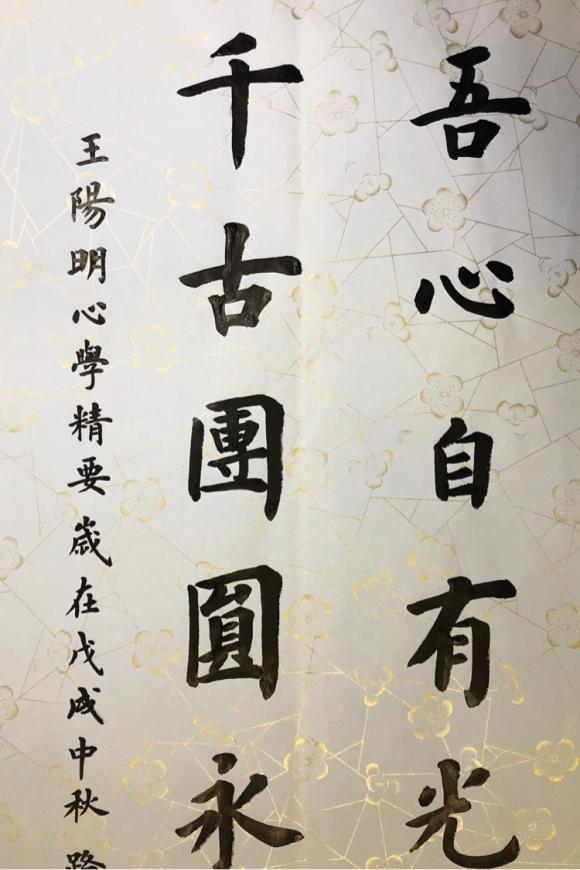 吾心自有光
千古團圓永
王陽明心學精要 歲在戊戌中秋